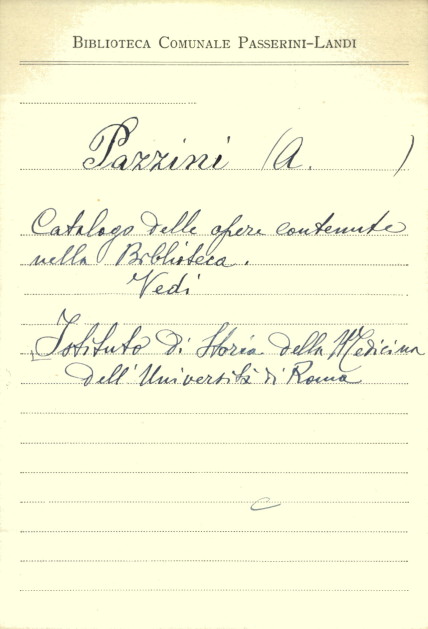 BIBLIOTECA COMUNALE PASSERINI-LANDI
Pazzini (A. )
Catalogo delle opere contenute
nella Biblioteca.
Vedi
Istituto di Storia della Medicina
dell'Università di Roma
c